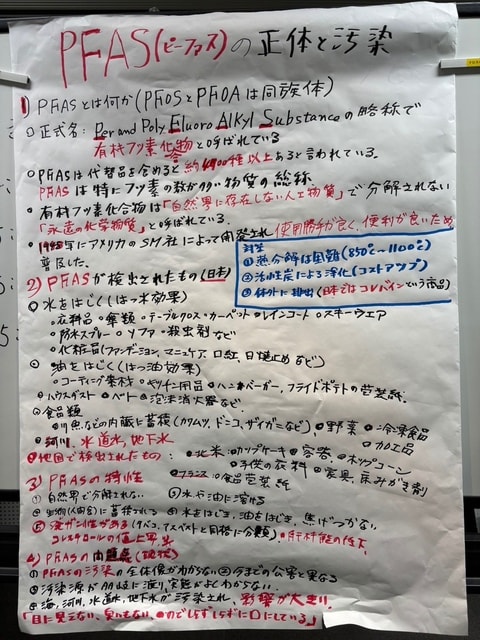 PFAS(ピーファス)の正体と汚染
1) PFASとは何か(PFOSとPFOAは同族体)
○正式名: Per and Poly Fluoro ALKyl Substanceの略称で
有機フッ素化物と呼ばれている
合
○PFASは代替品を含めると約4900種以上あると言われている.
PFASは特にフッ素の数が多い物質の総称
○有機フッ素化合物は「自然界に存在しない人工物質」で分解されない
「永遠の化学物質」と呼ばれている.
年にアメリカの3M社によって開発され使用勝手が良く、便利が良いため
普及した.
対策
①熱分解は困難(850℃~1100℃)
②活性炭による浄化(コストアップ)
③体外に排出(日本ではコレバインという商品)
2) PFASが検出されたもの(日本)
○水をはじく(はっ水効果)
○衣料品 ○靴類 ○テーブルクロス・カーペット ○レインコート ○スキーウェア
○防水スプレー ○ソファ ○殺虫剤など
○化粧品(ファンデーション、マニュキア、口紅、日焼止めなど)
○油をはじく(はっ油効果)
○コーティング素材 ○キッチン用品 ○ハンバーガー、フライドポテトの包装紙.
○ハウスダスト ○ペット ○泡沫消火器など.
○食品類
魚などの内臓に蓄積(カワハギ、ドンコ、ズワイガニなど)、○野菜 ○冷凍食品
○加工品
○河川、水道水、地下水
○他国で検出されたもの: ○北米 ○カップケーキ ○容器 ○ポップコーン
○子供の衣料 ○家具、床みがき剤
○フランス ○食品包装紙
3) PFASの特性
①自然界で分解されない ②水や油に溶ける
③生物(人間含)に蓄積される ④水をはじき、油をはじき、焦げつかない
⑤発ガン性がある(タバコ、アスベストと同格に分類)・肝機能の低下
コレステロールの値上昇
4) PFASの問題点(現状)
①PFASの汚染の全体像がわからない ②今までの公害と異なる
③汚染源が多岐に渡り、実態がよくわからない.
④海、河川、水道水、地下水が汚染され、影響が大きい.
「目に見えない、臭いもない、のでしらずしらずに口にしている」